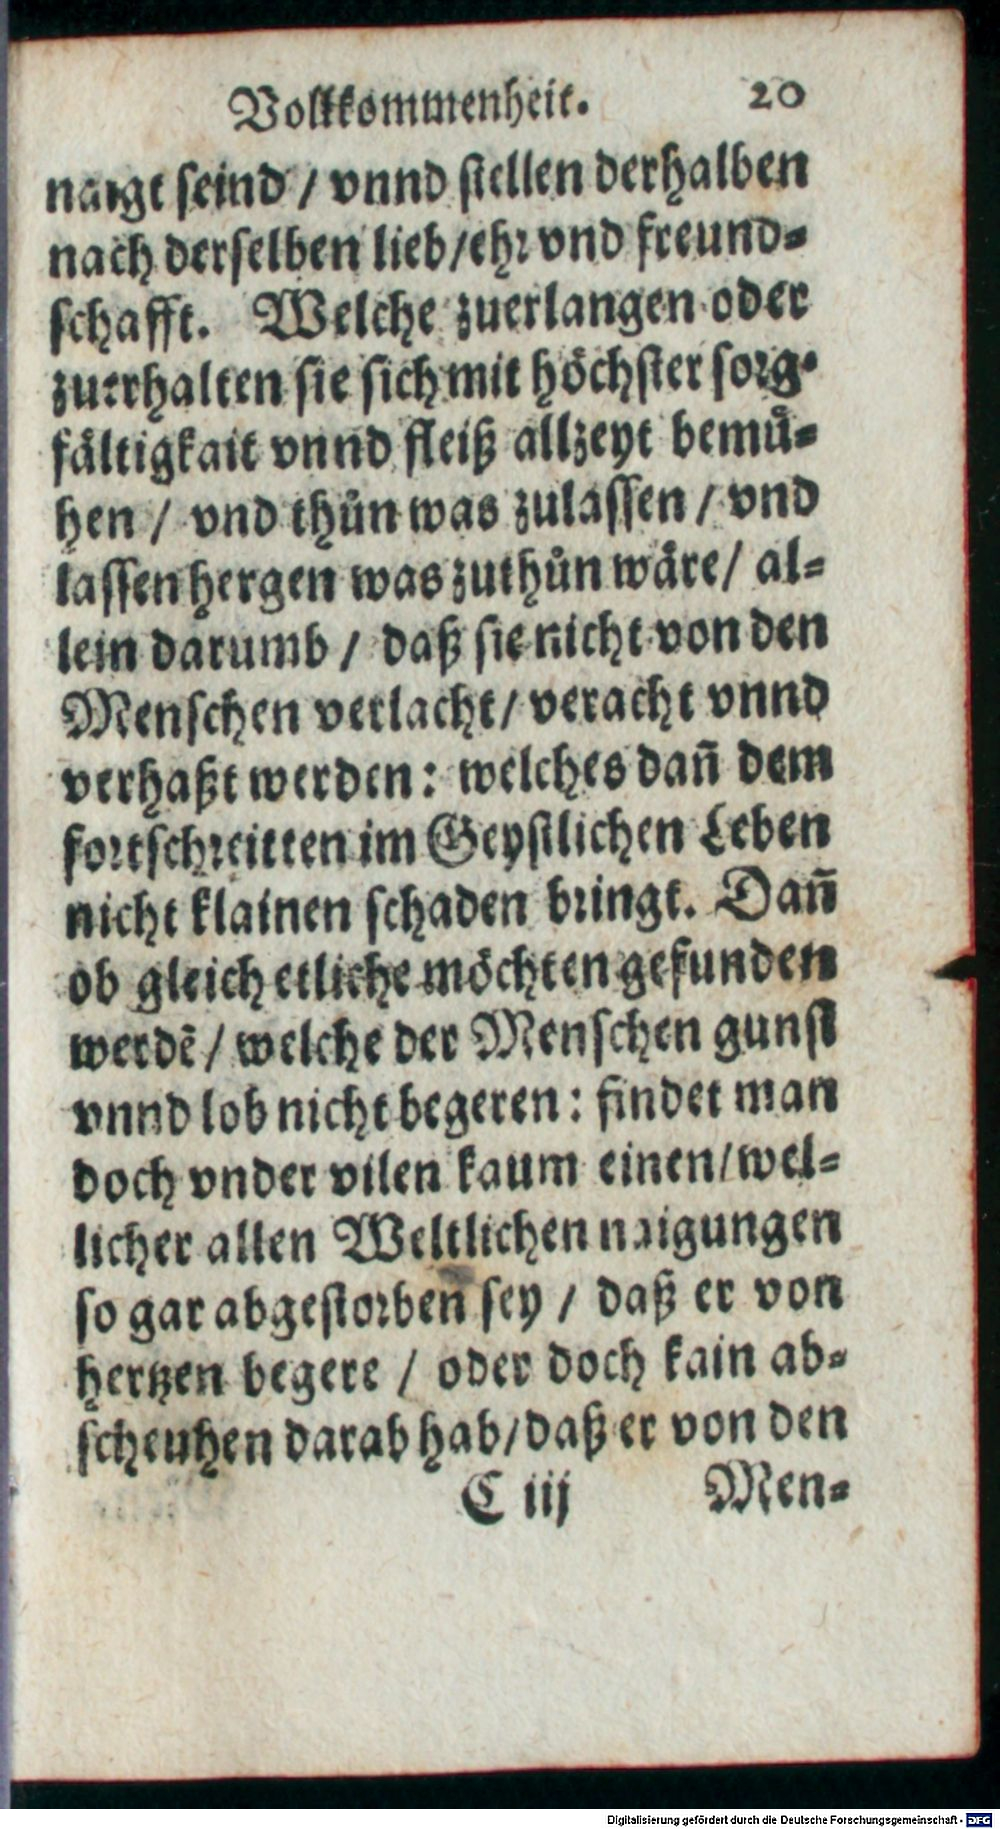 Vollkommenheit. 20
naigt seind / vnnd stellen derhalben
nach derselben lieb/ehr vnd freund=
schafft. Welche zuerlangen oder
zuerhalten sie sich mit höchster sorg=
fältigkait vnnd fleiß allzeyt bemü=
hen / vnd thůn was zulassen / vnd
lassen hergen was zuthůn wäre/ al=
lein darumb / daß sie nicht von den
Menschen verlacht/ veracht vnnd
verhaßt werden: welches dañ dem
fortschreitten im Geystlichen Leben
nicht klainen schaden bringt. Dañ
ob gleich etliche möchten gefunden
werdē/ welche der Menschen gunst
vnnd lob nicht begeren: findet man
doch vnder vilen kaum einen/wel=
licher allen Weltlichen naigungen
so gar abgestorben sey / daß er von
hertzen begere / oder doch kain ab=
scheuhen darab hab/daß er von den
C iij Men=
Digitalisierung gefördert durch die Deutsche Forschungsgemeinschaft - DFG